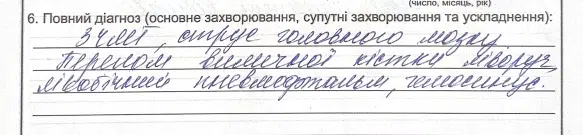 (число, місяць, рік)
6. Повний діагноз (основне захворювання, супутні захворювання та ускладнення):
ЗЧМТ, струс головного мозку,
Перелом виличної кістки ліворуч,
лівобічний пневмофтальм, гемосинус.